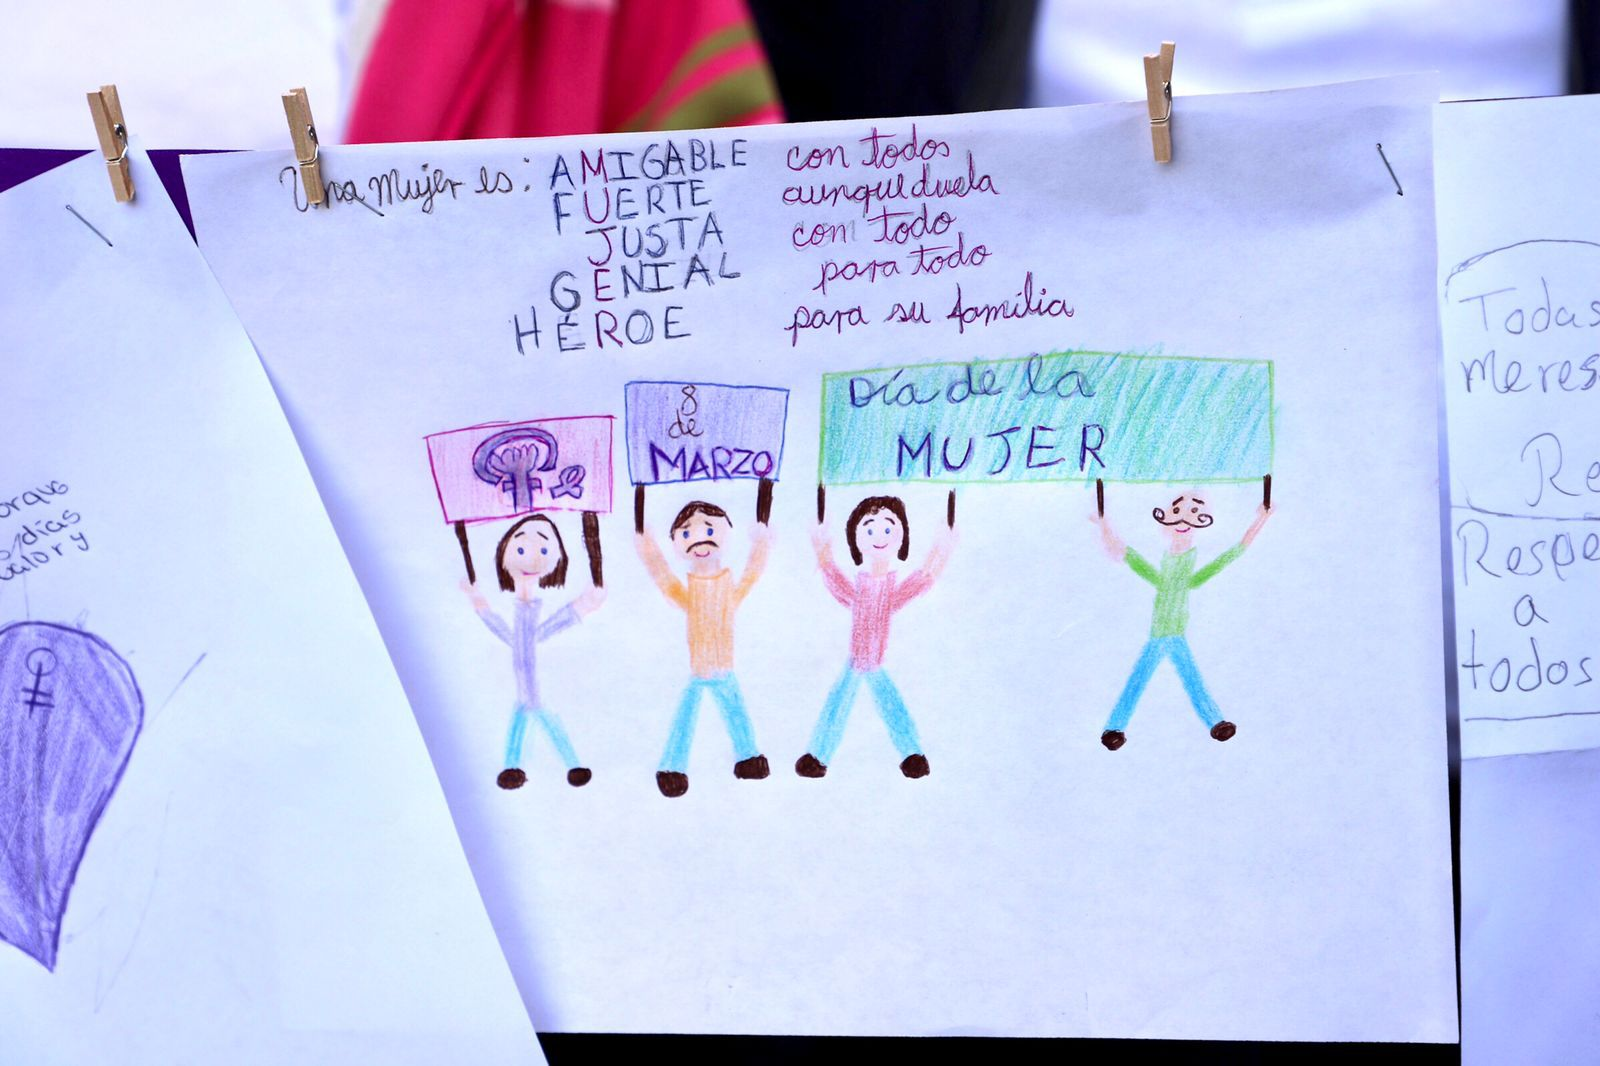 Una Mujer es: AMIGABLE con todos
FUERTE aunque duela
JUSTA con todo
GENIAL para todo
HÉROE para su familia
8
de
MARZO
Día de la
MUJER
días
Todas
meres
Re
Respe
a
todos